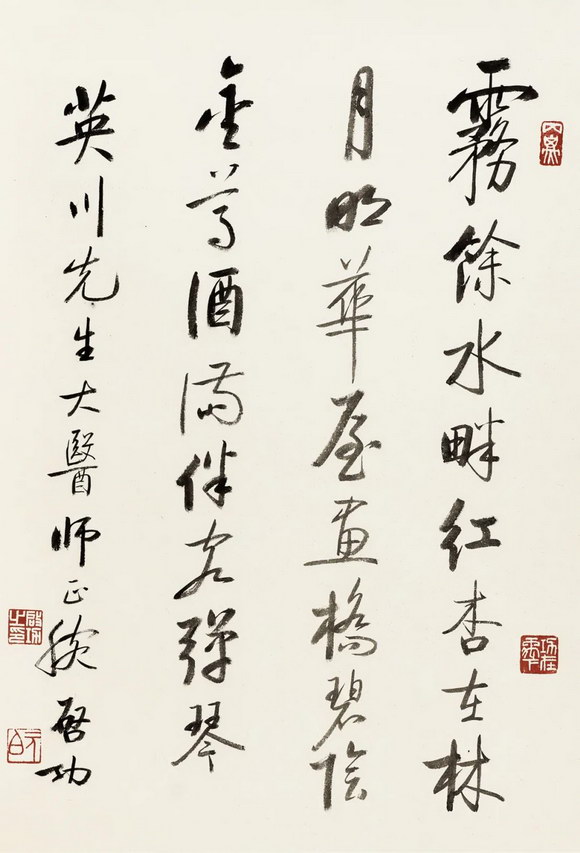 霧餘水畔紅杏在林
月明華屋畫橋碧陰
金尊酒滿伴客彈琴
英川先生大醫師正腕 啓功
啟功之印
元白